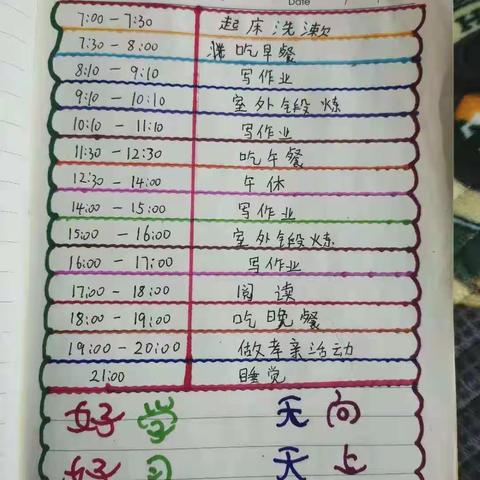 Date
7:00 - 7:30 起床洗漱
7:30 - 8:00 吃早餐
8:10 - 9:10 写作业
9:10 - 10:10 室外锻炼
10:10 - 11:10 写作业
11:30 - 12:30 吃午餐
12:30 - 14:00 午休
14:00 - 15:00 写作业
15:00 - 16:00 室外锻炼
16:00 - 17:00 写作业
17:00 - 18:00 阅读
18:00 - 19:00 吃晚餐
19:00 - 20:00 做孝亲活动
21:00 睡觉
好学 天向
好习 天上